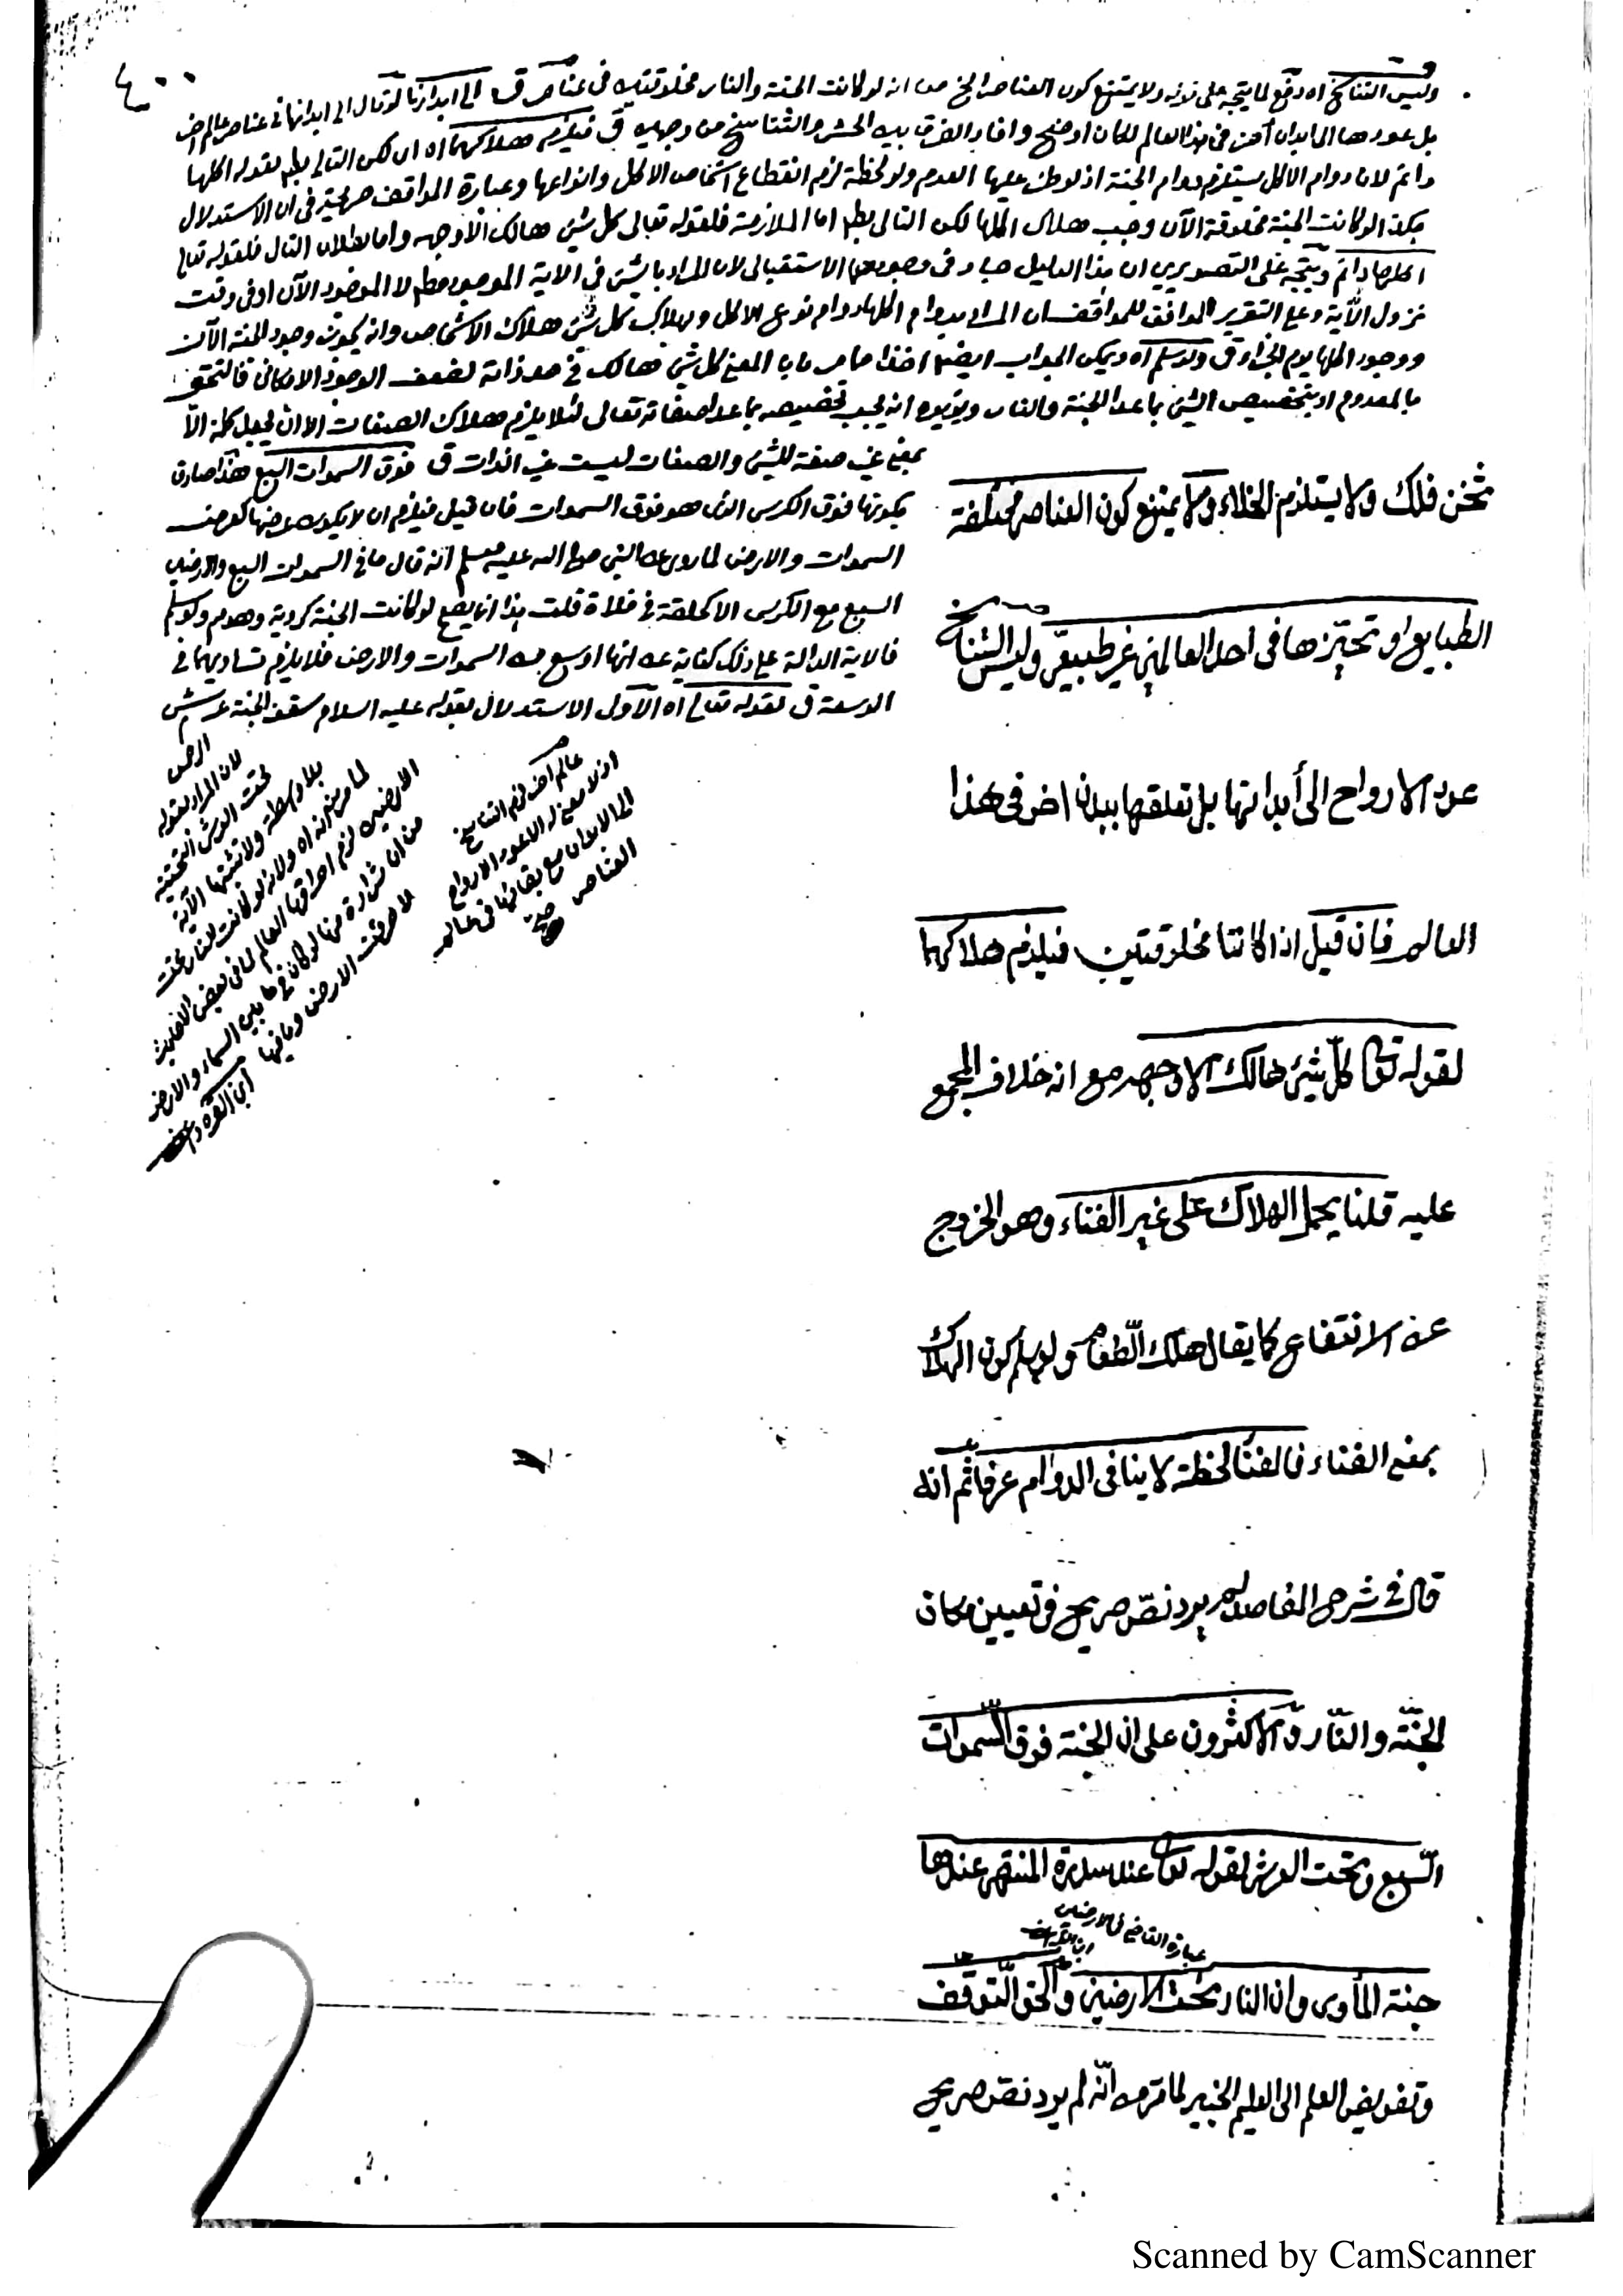 ٤٠٠
وليس التناسخ اه دفع لما يتجه على قوله ولا يمتنع كون العناصر الخ من انه لو كانت الجنة والنار مخلوقتين في عناصر ق الى ابدانها لو قال الى ابدانها في عناصر عالم اخر
بل عودها الى ابدان أخر في هذا العالم لكان اوضح وافاد الفرق بين الحشر والتناسخ من وجهين ق فيلزم هلاكهما اه ان لكن التالي بط لقوله اكلها
دائم لان دوام الاكل يستلزم دوام الجنة اذ لو طرء عليها العدم ولو لحظة لزم انقطاع اشخاص الاكل وانواعها وعبارة المواقف صريحة في ان الاستدلال
هكذا لو كانت الجنة مخلوقة الآن وجب هلاك اكلها لكن التالي بط اما الملازمة فلقوله تعالى كل شئ هالك الا وجهه واما بطلان التالي فلقوله تعالى
اكلها دائم ويتجه على التصويرين ان هذا الدليل جار في وجودهما الاستقبالي لان المراد بالشئ في الاية الموجود مط لا الموجود الآن او في وقت
نزول الآية وعلى التقرير الموافق للمواقف ان المراد بدوام اكلها دوام نوع الاكل وبهلاك كل شئ هلاك الاشخاص وانه يجوز وجود الجنة الآن
ووجود اكلها يوم الجزاء ق ولو سلم اه ويمكن الجواب ايضا اخذا مما مر بان المعنى كل شئ هالك في حد ذاته لضعف الوجود الامكاني فالتحق
بالمعدوم او بتخصيص الشئ بما عدا الجنة والنار ويؤيده انه يجب تخصيصه بما عدا صفاته تعالى لئلا يلزم هلاك الصفات الا ان يجعل كلمة الّا
بمعنى غير صفة للشئ والصفات ليست غير الذات ق فوق السموات السبع هذا صادق
بكونها فوق الكرسي الذي هو فوق السموات فان قيل فيلزم ان لا يكون عرضها كعرض
السموات والارض لما روى عن النبي صلى الله عليه وسلم انه قال ما في السموات السبع والارضين
السبع مع الكرسي الا كحلقة في فلاة قلت هذا انما يصح لو كانت الجنة كروية وهو مم ولو سلم
فالاية الدالة على ذلك كناية عن انها اوسع من السموات والارض فلا يلزم تساويهما في
الوسعة ق لقوله تعالى اه الآولى الاستدلال بقوله عليه السلام سقف الجنة عرش
الرحمن
لان المراد بقوله
تحت العرش التحتية
بلا واسطة ولا تثبتها الآية
لما مر انه اه ولانه لو كانت النار تحت
الارضين لزم احراقها العالم لما في بعض الاحاديث
من ان شرارة منها لو كان في ما بين السماء والارض
لاحرقت الارض وما فيها
ابن القره داغي
عالم اخر لزم التناسخ
اذ لا معنى له الا عود الارواح
الى الابدان مع بقائها في عالم
العناصر
منه
ثخن فلك ولا يستلزم الخلاء ولا يمتنع كون العناصر مختلفة
الطبايع او تحيّزها في احد العالمين غير طبيعيّ وليس التناسخ
عود الارواح الى أبدانها بل تعلقها ببدن اخر في هذا
العالم فان قيل اذا كانتا مخلوقتين فيلزم هلاكهما
لقوله تعالى كلّ شئ هالك الا وجهه مع انه خلاف المجمع
عليه قلنا يحمل الهلاك على غير الفناء وهو الخروج
عن الانتفاع كما يقال هلك الطّعام ولو سلم كون الهلاك
بمعنى الفناء فالفناء لحظة لا ينافي الدوام عرفا ثم انه
قال في شرح المقاصد لم يرد نصّ صريح في تعيين مكان
الجنّة والنّار والاكثرون على ان الجنة فوق السّموات
السّبع وتحت العرش لقوله تعالى عند سدرة المنتهى عندها
عبارة القاضي الارضين
ابن القره داغي
جنة المأوى وان النار تحت الارضين والحق التّوقّف
وتفويض العلم الى العليم الخبير لما مر من انّه لم يرد نص صريح
Scanned by CamScanner